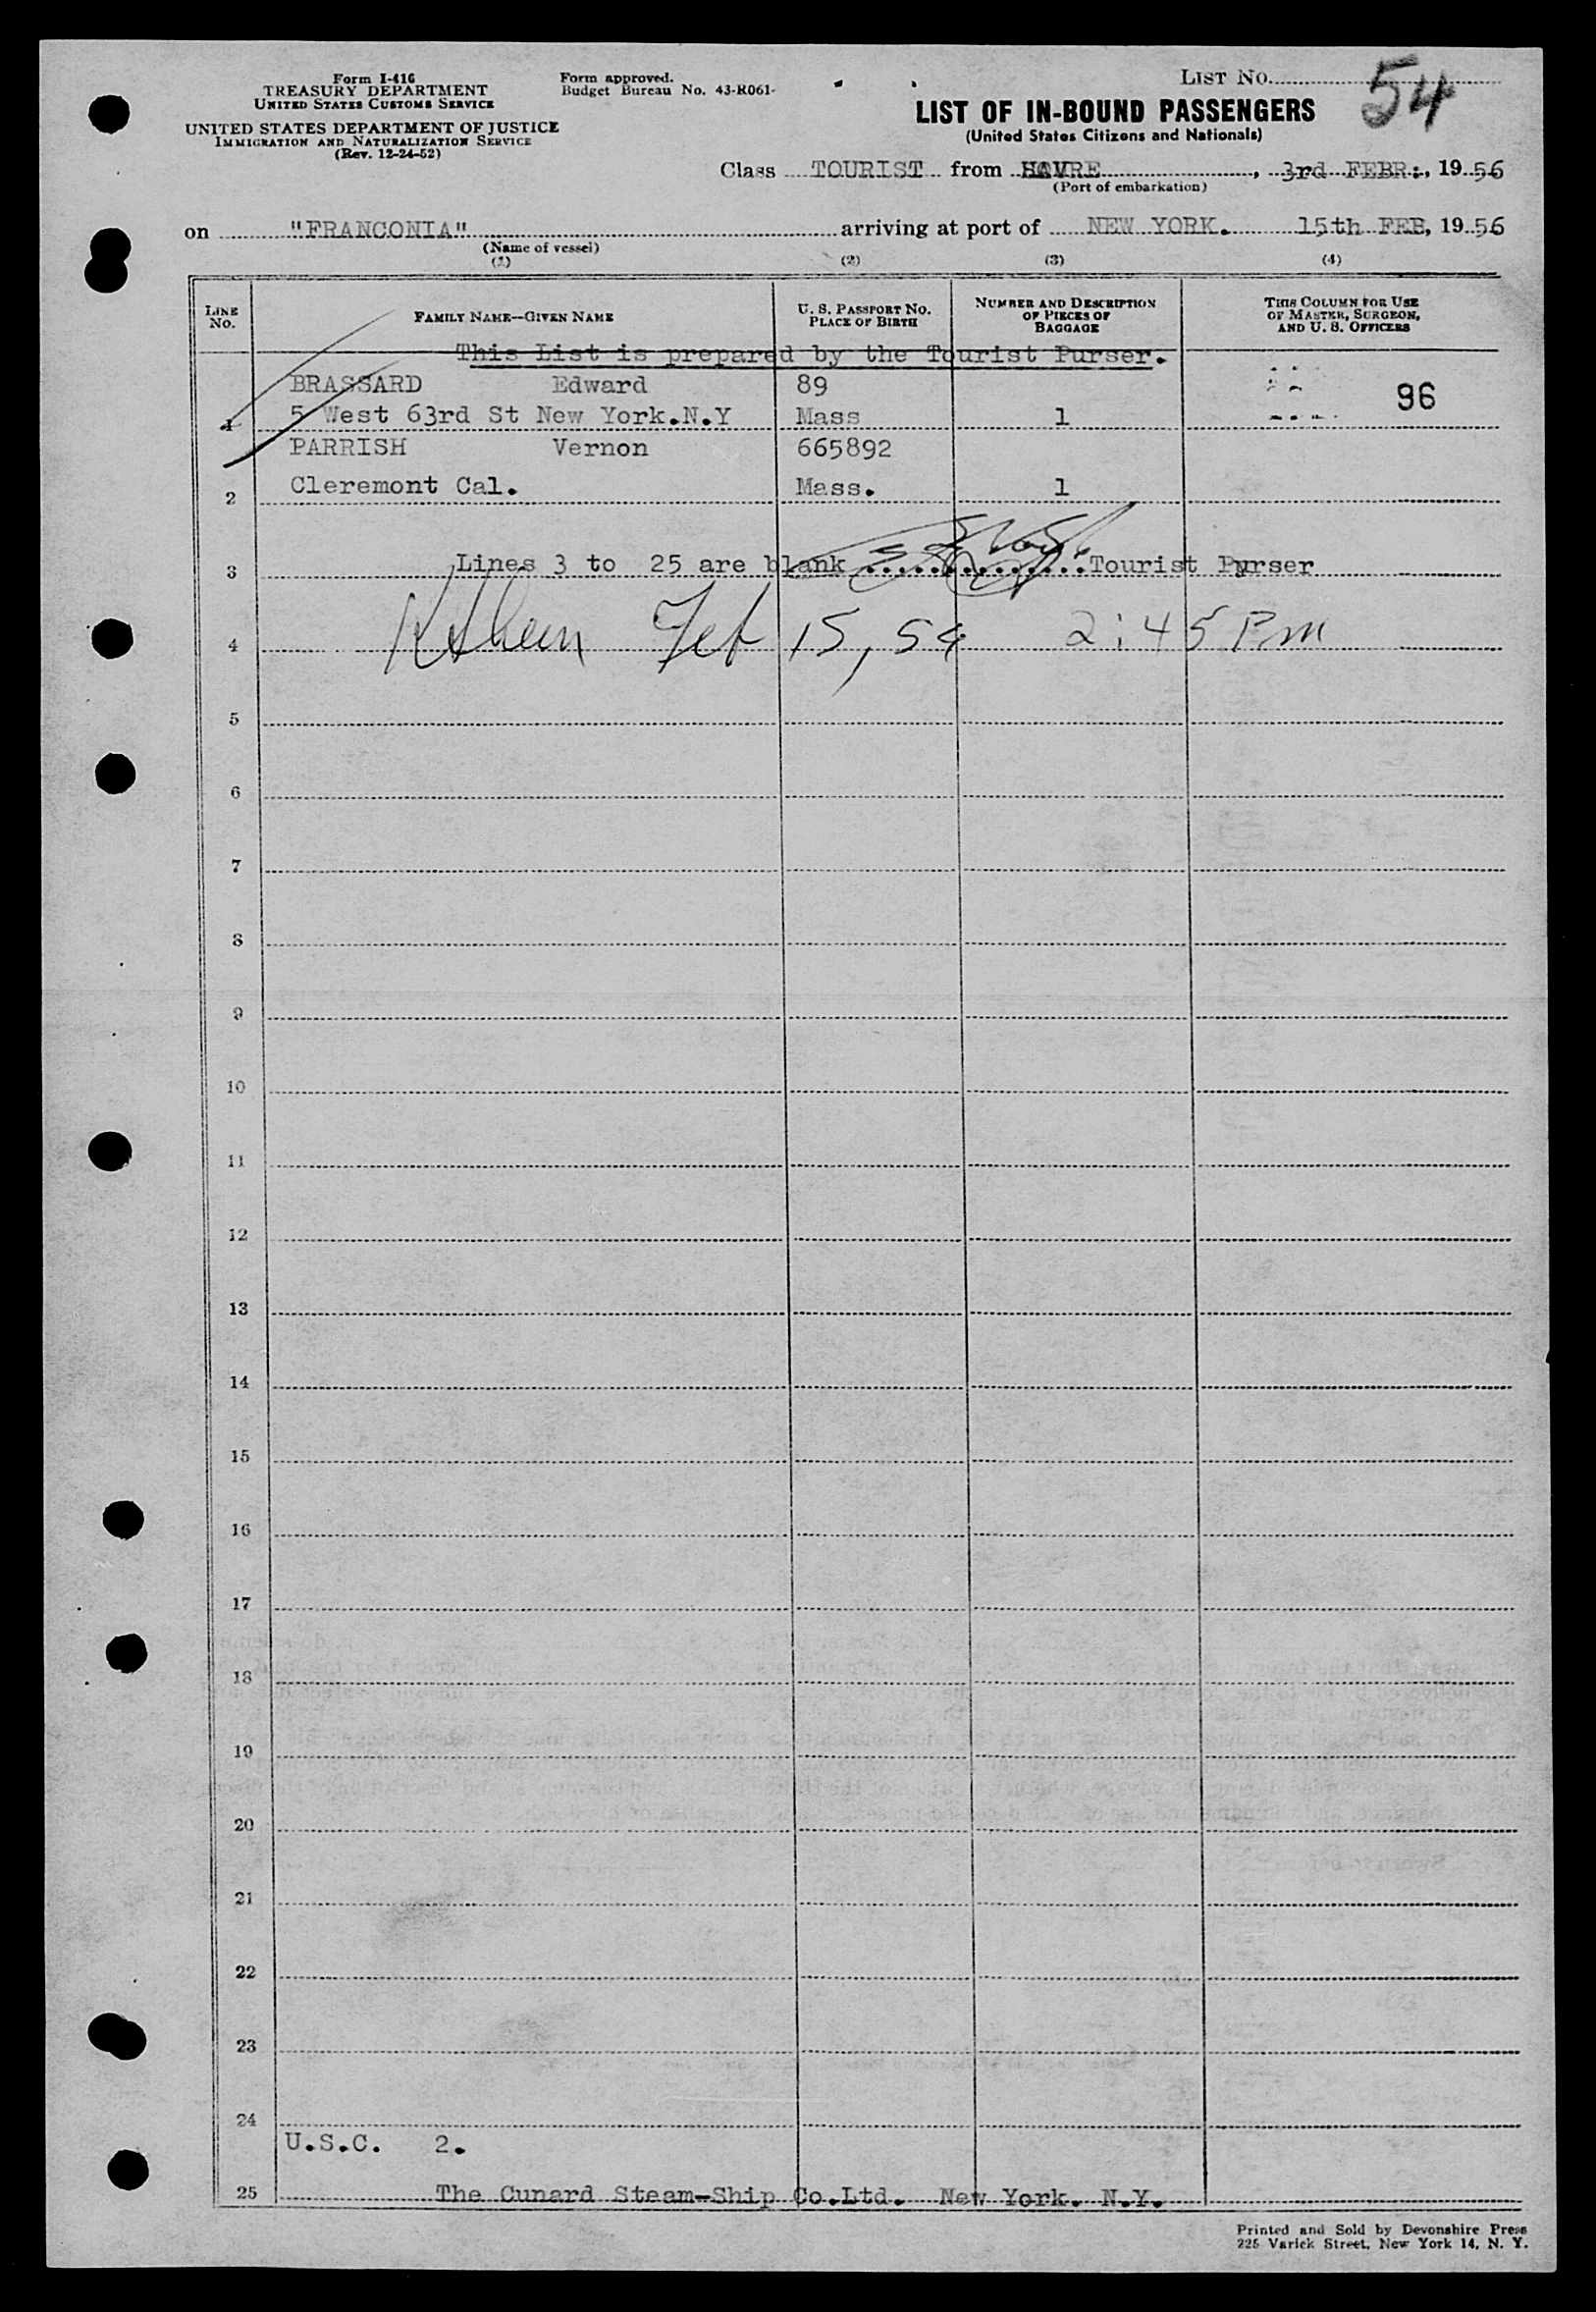 Form I-416
TREASURY DEPARTMENT
UNITED STATES CUSTOMS SERVICE
UNITED STATES DEPARTMENT OF JUSTICE
IMMIGRATION AND NATURALIZATION SERVICE
(Rev. 12-24-52)
Form approved.
Budget Bureau No. 43-R061-
LIST No. 54
LIST OF IN-BOUND PASSENGERS
(United States Citizens and Nationals)
Class TOURIST from HAVRE, 3rd FEBR:, 1956
(Port of embarkation)
on "FRANCONIA" arriving at port of NEW YORK. 15th FEB, 1956
(Name of vessel)
(1) (2) (3) (4)
LINE No.
FAMILY NAME—GIVEN NAME
U. S. PASSPORT NO. PLACE OF BIRTH
NUMBER AND DESCRIPTION OF PIECES OF BAGGAGE
THIS COLUMN FOR USE OF MASTER, SURGEON, AND U. S. OFFICERS
This List is prepared by the Tourist Purser.
BRASSARD Edward 89 96
1 5 West 63rd St New York.N.Y Mass 1
PARRISH Vernon 665892
2 Cleremont Cal. Mass. 1
3 Lines 3 to 25 are blank ..............Tourist Purser
4 Feb 15, 54 2:45 Pm
5
6
7
8
9
10
11
12
13
14
15
16
17
18
19
20
21
22
23
24
U.S.C. 2.
25 The Cunard Steam-Ship Co.Ltd. New York. N.Y.
Printed and Sold by Devonshire Press
225 Varick Street, New York 14, N. Y.